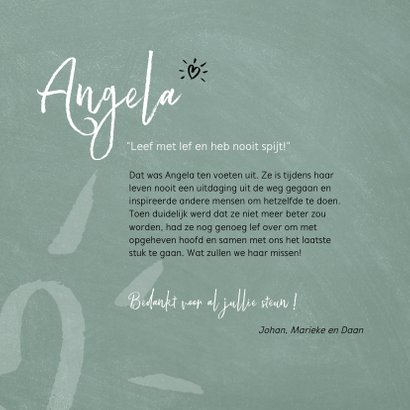 Angela
"Leef met lef en heb nooit spijt!"
Dat was Angela ten voeten uit. Ze is tijdens haar
leven nooit een uitdaging uit de weg gegaan en
inspireerde andere mensen om hetzelfde te doen.
Toen duidelijk werd dat ze niet meer beter zou
worden, had ze nog genoeg lef over om met
opgeheven hoofd en samen met ons het laatste
stuk te gaan. Wat zullen we haar missen!
Bedankt voor al jullie steun!
Johan, Marieke en Daan